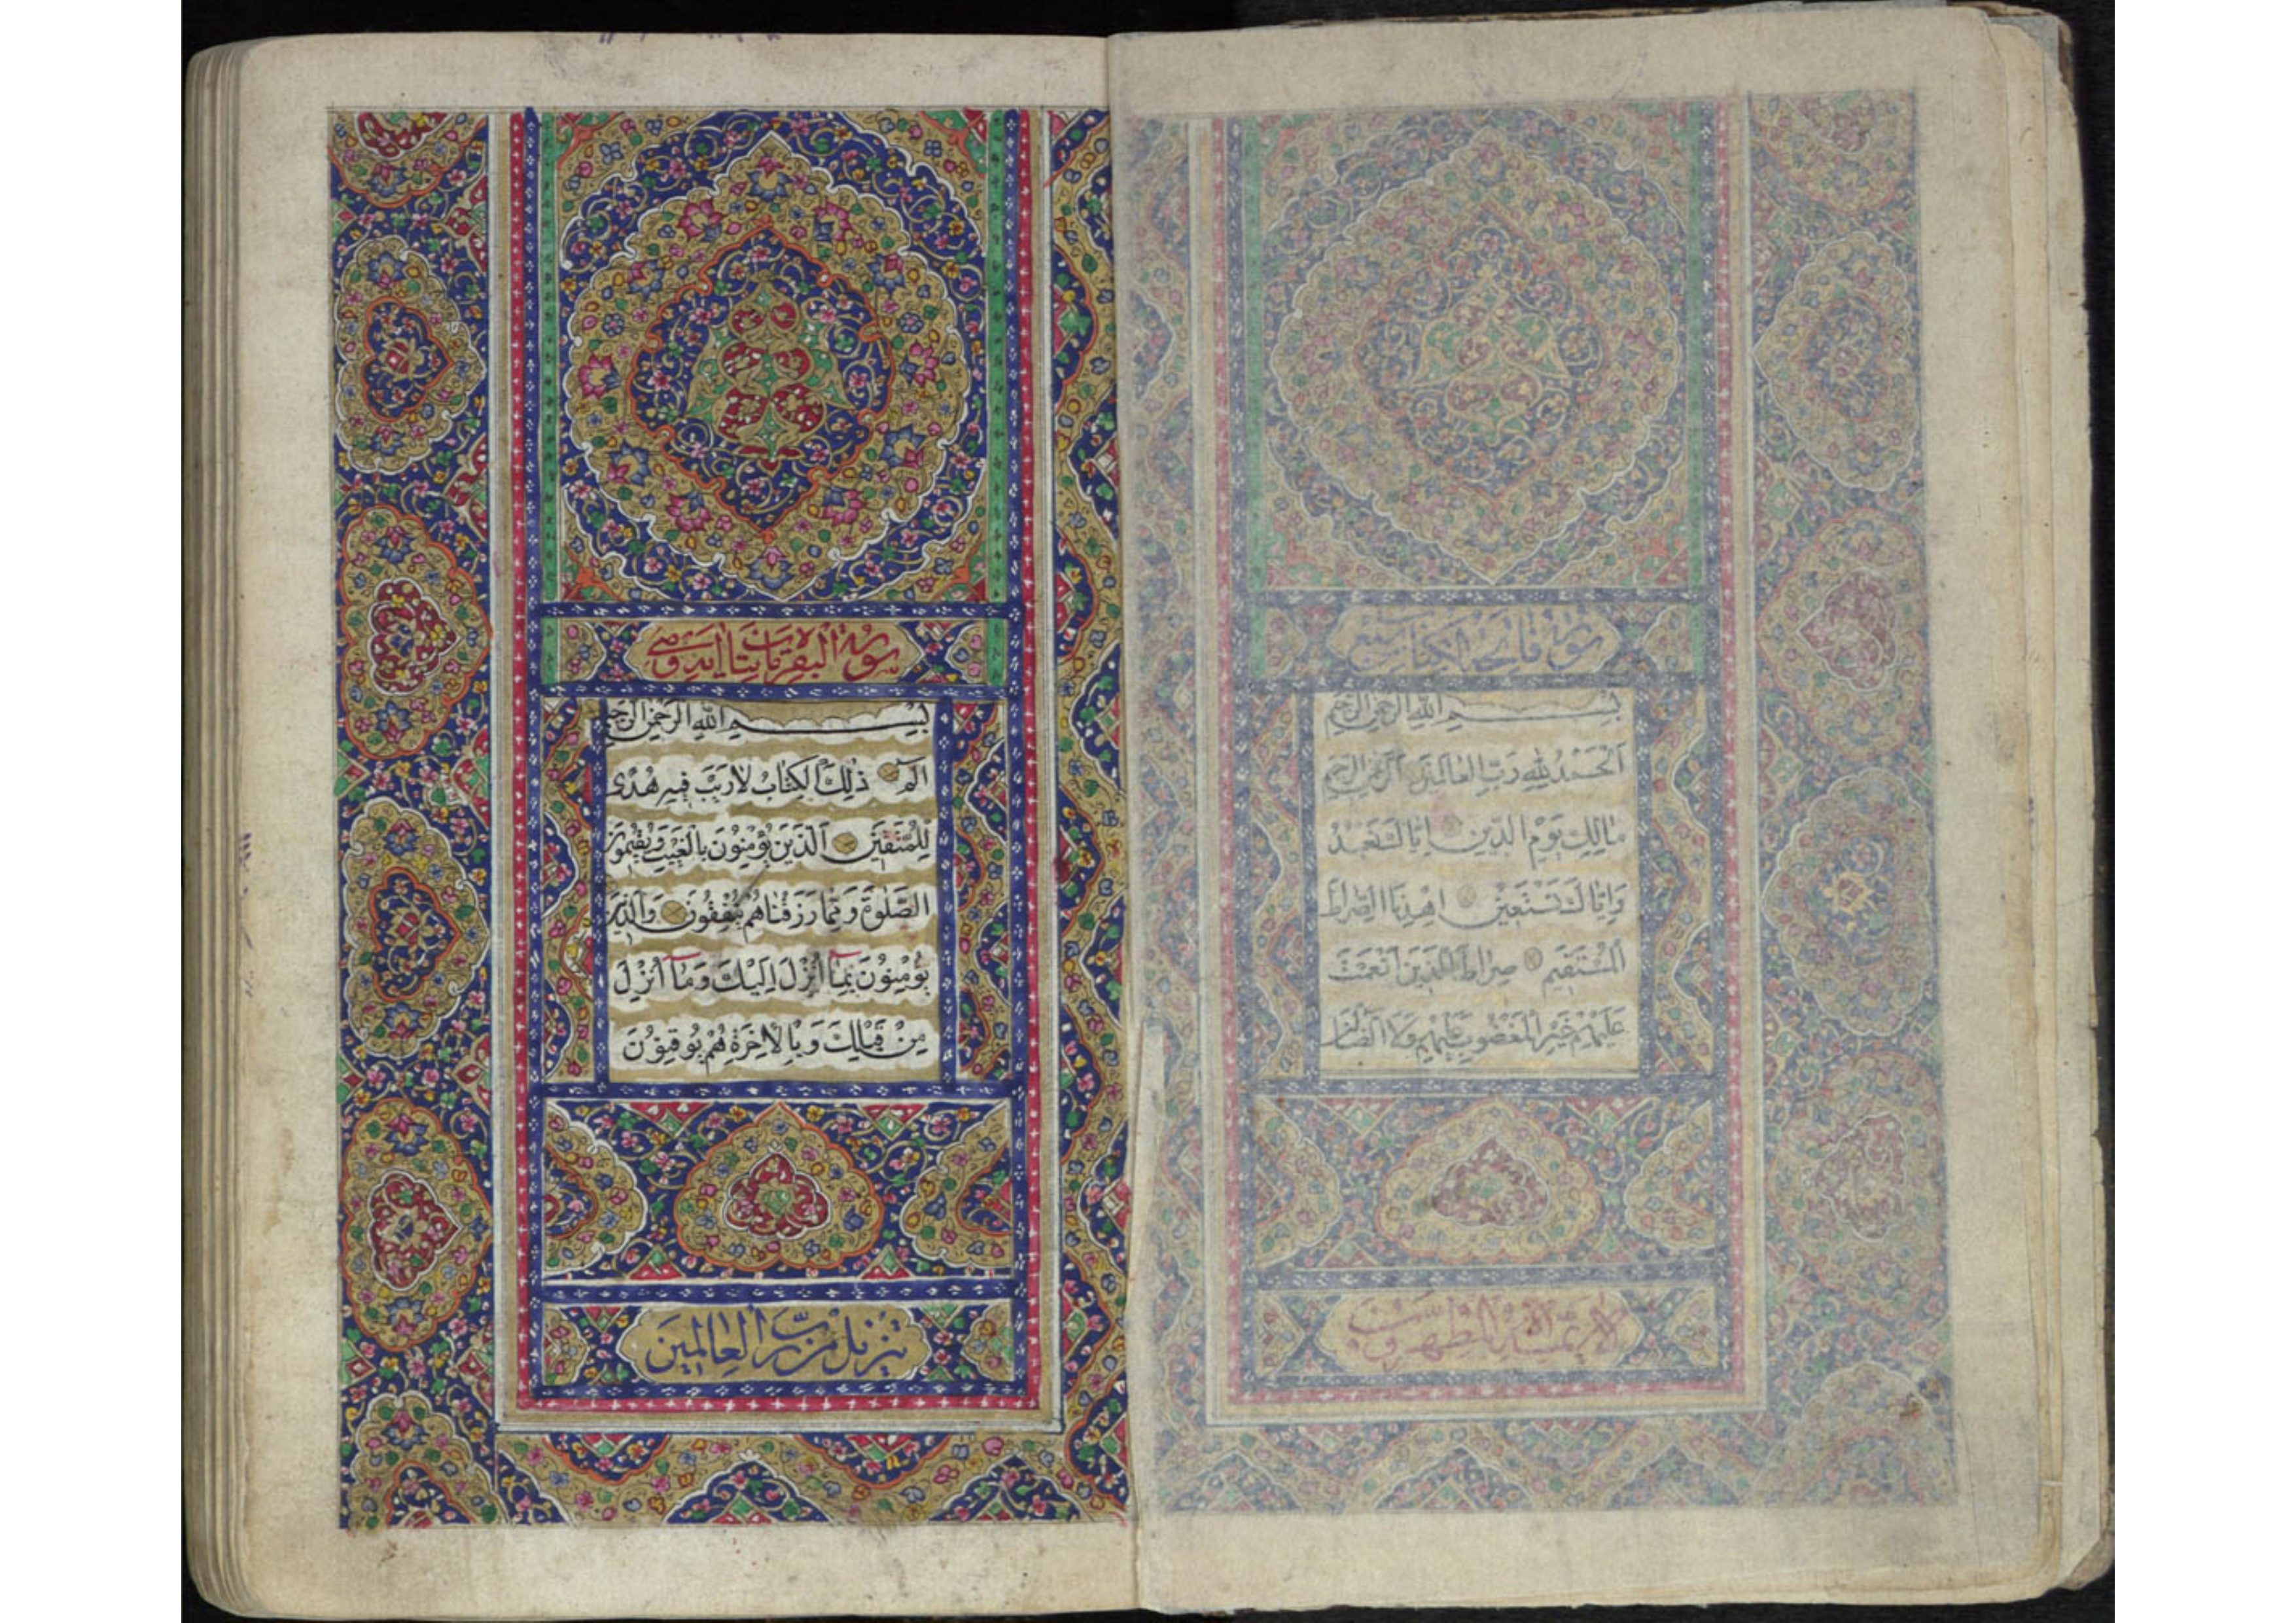 سورة فاتحة الكتاب سبع
بِسْمِ اللهِ الرَّحْمٰنِ الرَّحِيمِ
اَلْحَمْدُ لِلهِ رَبِّ الْعَالَمِينَ اَلرَّحْمٰنِ الرَّحِيمِ
مَالِكِ يَوْمِ الدِّينِ اِيَّاكَ نَعْبُدُ
وَاِيَّاكَ نَسْتَعِينُ اِهْدِنَا الصِّرَاطَ
الْمُسْتَقِيمَ صِرَاطَ الَّذِينَ اَنْعَمْتَ
عَلَيْهِمْ غَيْرِ الْمَغْضُوبِ عَلَيْهِمْ وَلَا الضَّالِّينَ
لا يمسه الا المطهرون
سورة البقرة
بِسْمِ اللهِ الرَّحْمٰنِ الرَّحِيمِ
الٓمٓ ذٰلِكَ الْكِتَابُ لَارَيْبَ فِيهِ هُدًى
لِلْمُتَّقِينَ اَلَّذِينَ يُؤْمِنُونَ بِالْغَيْبِ وَيُقِيمُونَ
الصَّلٰوةَ وَمِمَّا رَزَقْنَاهُمْ يُنْفِقُونَ وَالَّذِينَ
يُؤْمِنُونَ بِمَٓا اُنْزِلَ اِلَيْكَ وَمَٓا اُنْزِلَ
مِنْ قَبْلِكَ وَبِالْاٰخِرَةِ هُمْ يُوقِنُونَ
تَنْزِيلٌ مِنْ رَبِّ الْعَالَمِينَ